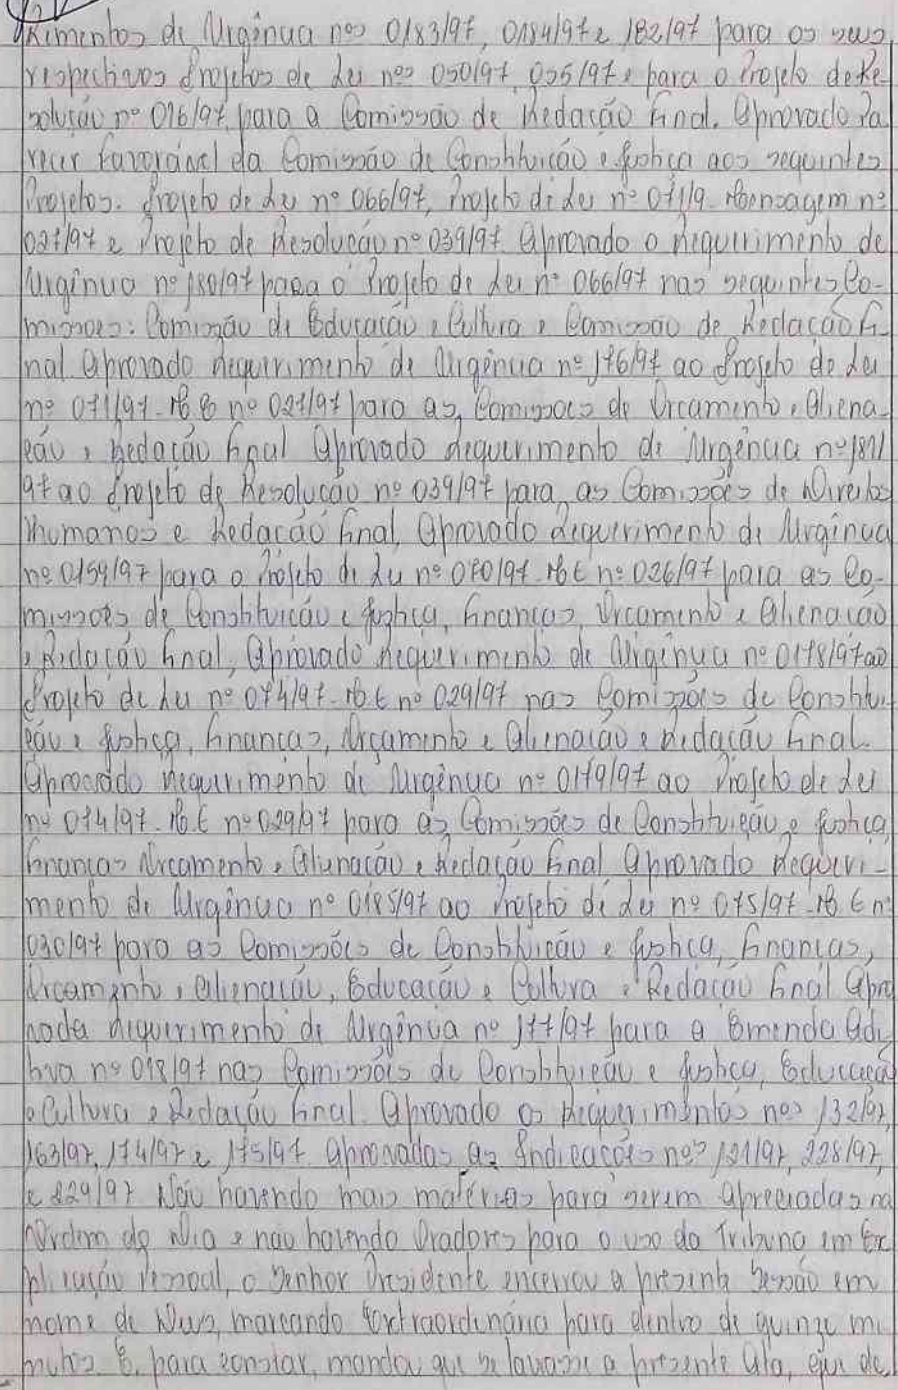 rimentos de Urgência nºs 0183/97, 0184/97 e 182/97 para os seus
respectivos Projetos de Lei nºs 050/97, 055/97 e para o Projeto de Re-
solução nº 016/97, para a Comissão de Redação Final. Aprovado Pa
recer Favorável da Comissão de Constituição e Justiça aos seguintes
Projetos: Projeto de Lei nº 066/97, Projeto de Lei nº 071/9 - Mensagem nº
027/97 e Projeto de Resolução nº 039/97. Aprovado o Requerimento de
Urgência nº 180/97 para o Projeto de Lei nº 066/97 nas seguintes Co-
missões: Comissão de Educação e Cultura e Comissão de Redação Fi-
nal. Aprovado Requerimento de Urgência nº 176/97 ao Projeto de Lei
nº 071/97 - M.E nº 027/97 para as Comissões de Orçamento e Aliena-
ção e Redação Final. Aprovado Requerimento de Urgência nº 181/
97 ao Projeto de Resolução nº 039/97 para as Comissões de Direitos
Humanos e Redação Final, Aprovado Requerimento de Urgência
nº 0159/97 para o Projeto de Lei nº 070/97 - M.E nº 026/97 para as Co-
missões de Constituição e Justiça, Finanças, Orçamento e Alienação
e Redação Final, Aprovado Requerimento de Urgência nº 0178/97 ao
Projeto de Lei nº 074/97 - M.E nº 029/97 nas Comissões de Constitui-
ção e Justiça, Finanças, Orçamento e Alienação e Redação Final.
Aprovado Requerimento de Urgência nº 0179/97 ao Projeto de Lei
nº 074/97 - M.E nº 029/97 para as Comissões de Constituição e Justiça
Finanças Orçamento e Alienação e Redação Final Aprovado Requeri-
mento de Urgência nº 0185/97 ao Projeto de Lei nº 075/97 - M.E nº
030/97 para as Comissões de Constituição e Justiça, Finanças,
Orçamento e Alienação, Educação e Cultura e Redação Final Apro
vada Requerimento de Urgência nº 177/97 para a Emenda Adi
tiva nº 018/97 nas Comissões de Constituição e Justiça, Educação
e Cultura e Redação Final. Aprovado os Requerimentos nºs 132/97,
163/97, 174/97 e 175/97. Aprovadas as Indicações nºs 121/97, 228/97,
e 229/97. Não havendo mais matérias para serem apreciadas na
Ordem do Dia e não havendo Oradores para o uso da Tribuna em Ex
plicação Pessoal, o Senhor Presidente encerrou a presente Sessão em
nome de Deus, marcando Extraordinária para dentro de quinze mi
nutos. E, para constar, mandou que se lavasse a presente Ata, que de,